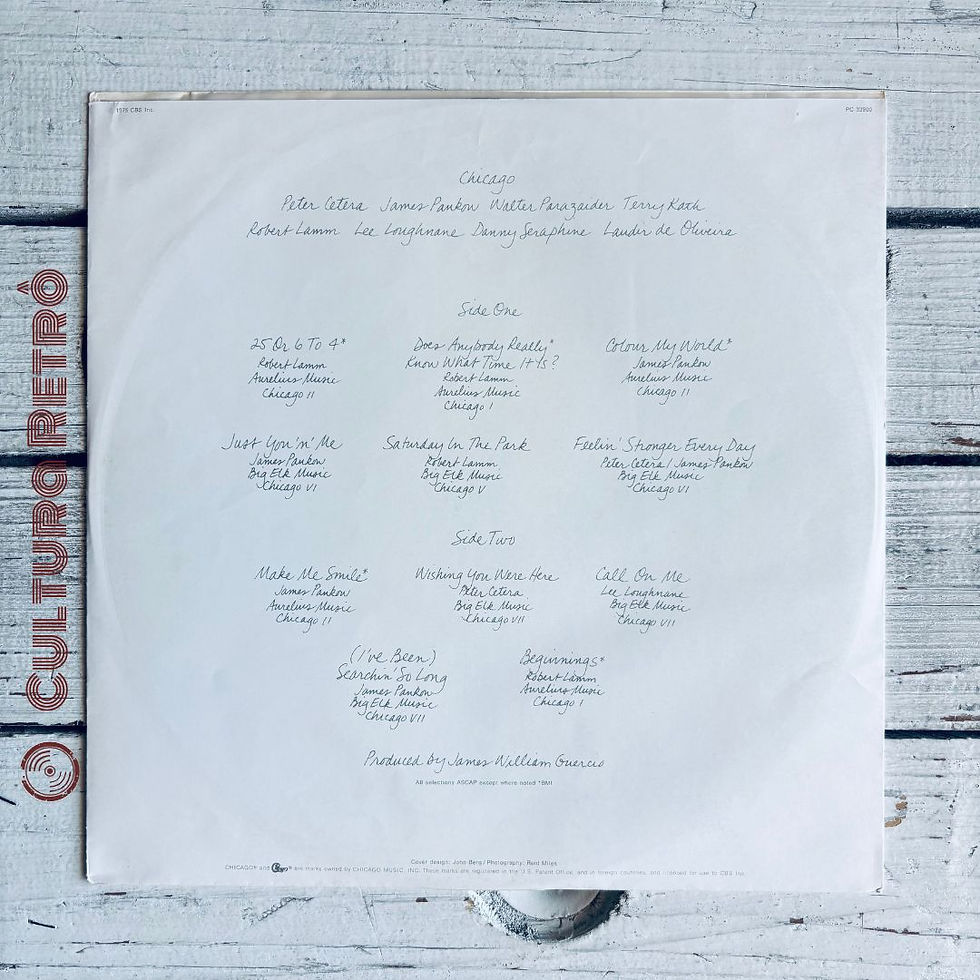 1975 CBS Inc.
PC 33900
Chicago
Peter Cetera James Pankow Walter Parazaider Terry Kath
Robert Lamm Lee Loughnane Danny Seraphine Laudir de Oliveira
Side One
25 Or 6 To 4*
Robert Lamm
Aurelius Music
Chicago II
Does Anybody Really*
Know What Time It Is?
Robert Lamm
Aurelius Music
Chicago I
Colour My World*
James Pankow
Aurelius Music
Chicago II
Just You 'n' Me
James Pankow
Big Elk Music
Chicago VI
Saturday In The Park
Robert Lamm
Big Elk Music
Chicago V
Feelin' Stronger Every Day
Peter Cetera / James Pankow
Big Elk Music
Chicago VI
Side Two
Make Me Smile*
James Pankow
Aurelius Music
Chicago II
Wishing You Were Here
Peter Cetera
Big Elk Music
Chicago VII
Call On Me
Lee Loughnane
Big Elk Music
Chicago VII
(I've Been)
Searchin' So Long
James Pankow
Big Elk Music
Chicago VII
Beginnings*
Robert Lamm
Aurelius Music
Chicago I
Produced by James William Guercio
All selections ASCAP except where noted *BMI
Cover design: John Berg / Photography: Reid Miles
CHICAGO® and Chicago® are marks owned by CHICAGO MUSIC, INC. These marks are registered in the U.S. Patent Office, and in foreign countries, and licensed for use to CBS Inc.
CULTURA RETRÔ